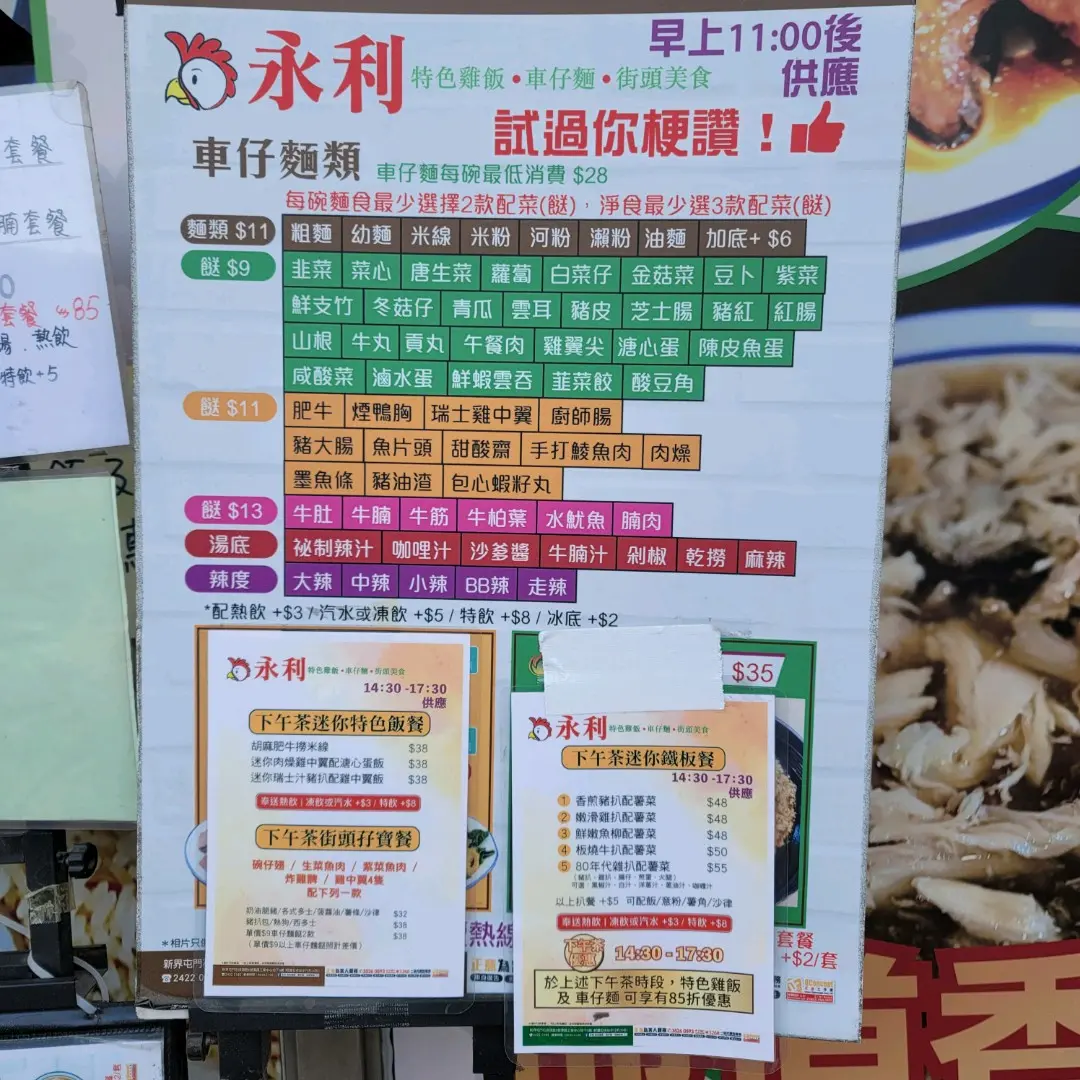 永利 特色雞飯•車仔麵•街頭美食
早上11:00後
供應
試過你梗讚！
車仔麵類 車仔麵每碗最低消費 $28
每碗麵食最少選擇2款配菜(餸)，淨食最少選3款配菜(餸)
麵類 $11 粗麵 幼麵 米線 米粉 河粉 瀨粉 油麵 加底+ $6
餸 $9 韭菜 菜心 唐生菜 蘿蔔 白菜仔 金菇菜 豆卜 紫菜
鮮支竹 冬菇仔 青瓜 雲耳 豬皮 芝士腸 豬紅 紅腸
山根 牛丸 貢丸 午餐肉 雞翼尖 溏心蛋 陳皮魚蛋
咸酸菜 滷水蛋 鮮蝦雲吞 韮菜餃 酸豆角
餸 $11 肥牛 煙鴨胸 瑞士雞中翼 廚師腸
豬大腸 魚片頭 甜酸齋 手打鯪魚肉 肉燥
墨魚條 豬油渣 包心蝦籽丸
餸 $13 牛肚 牛腩 牛筋 牛柏葉 水魷魚 腩肉
湯底 祕制辣汁 咖哩汁 沙爹醬 牛腩汁 剁椒 乾撈 麻辣
辣度 大辣 中辣 小辣 BB辣 走辣
*配熱飲 +$3 / 汽水或凍飲 +$5 / 特飲 +$8 / 冰底 +$2
永利 特色雞飯•車仔麵•街頭美食
14:30 -17:30
供應
下午茶迷你特色飯餐
胡麻肥牛撈米線 $38
迷你肉燥雞中翼配溏心蛋飯 $38
迷你瑞士汁豬扒配雞中翼飯 $38
奉送熱飲 | 凍飲或汽水 +$3 / 特飲 +$8
下午茶街頭孖寶餐
碗仔翅 / 生菜魚肉 / 紫菜魚肉 /
炸雞髀 / 雞中翼4隻
配下列一款
奶油脆豬/各式多士/菠蘿油/薯條/沙律 $32
豬扒包/熱狗/西多士 $38
單價$9車仔麵餸2款 $38
(單價$9以上車仔麵餸照計差價)
$35
永利 特色雞飯•車仔麵•街頭美食
下午茶迷你鐵板餐
14:30 -17:30
供應
1 香煎豬扒配薯菜 $48
2 嫩滑雞扒配薯菜 $48
3 鮮嫩魚柳配薯菜 $48
4 板燒牛扒配薯菜 $50
5 80年代雜扒配薯菜 $55
以上扒餐 +$5 可配飯/意粉/薯角/沙律
奉送熱飲 | 凍飲或汽水 +$3 / 特飲 +$8
14:30 - 17:30
於上述下午茶時段，特色雞飯
及 車仔麵 可享有85折優惠
*相片只
新界屯門
☎2422 0
熱線
套餐
+$2/套
套餐
腩套餐
0
套餐 85
湯．熱飲
特飲+5
香